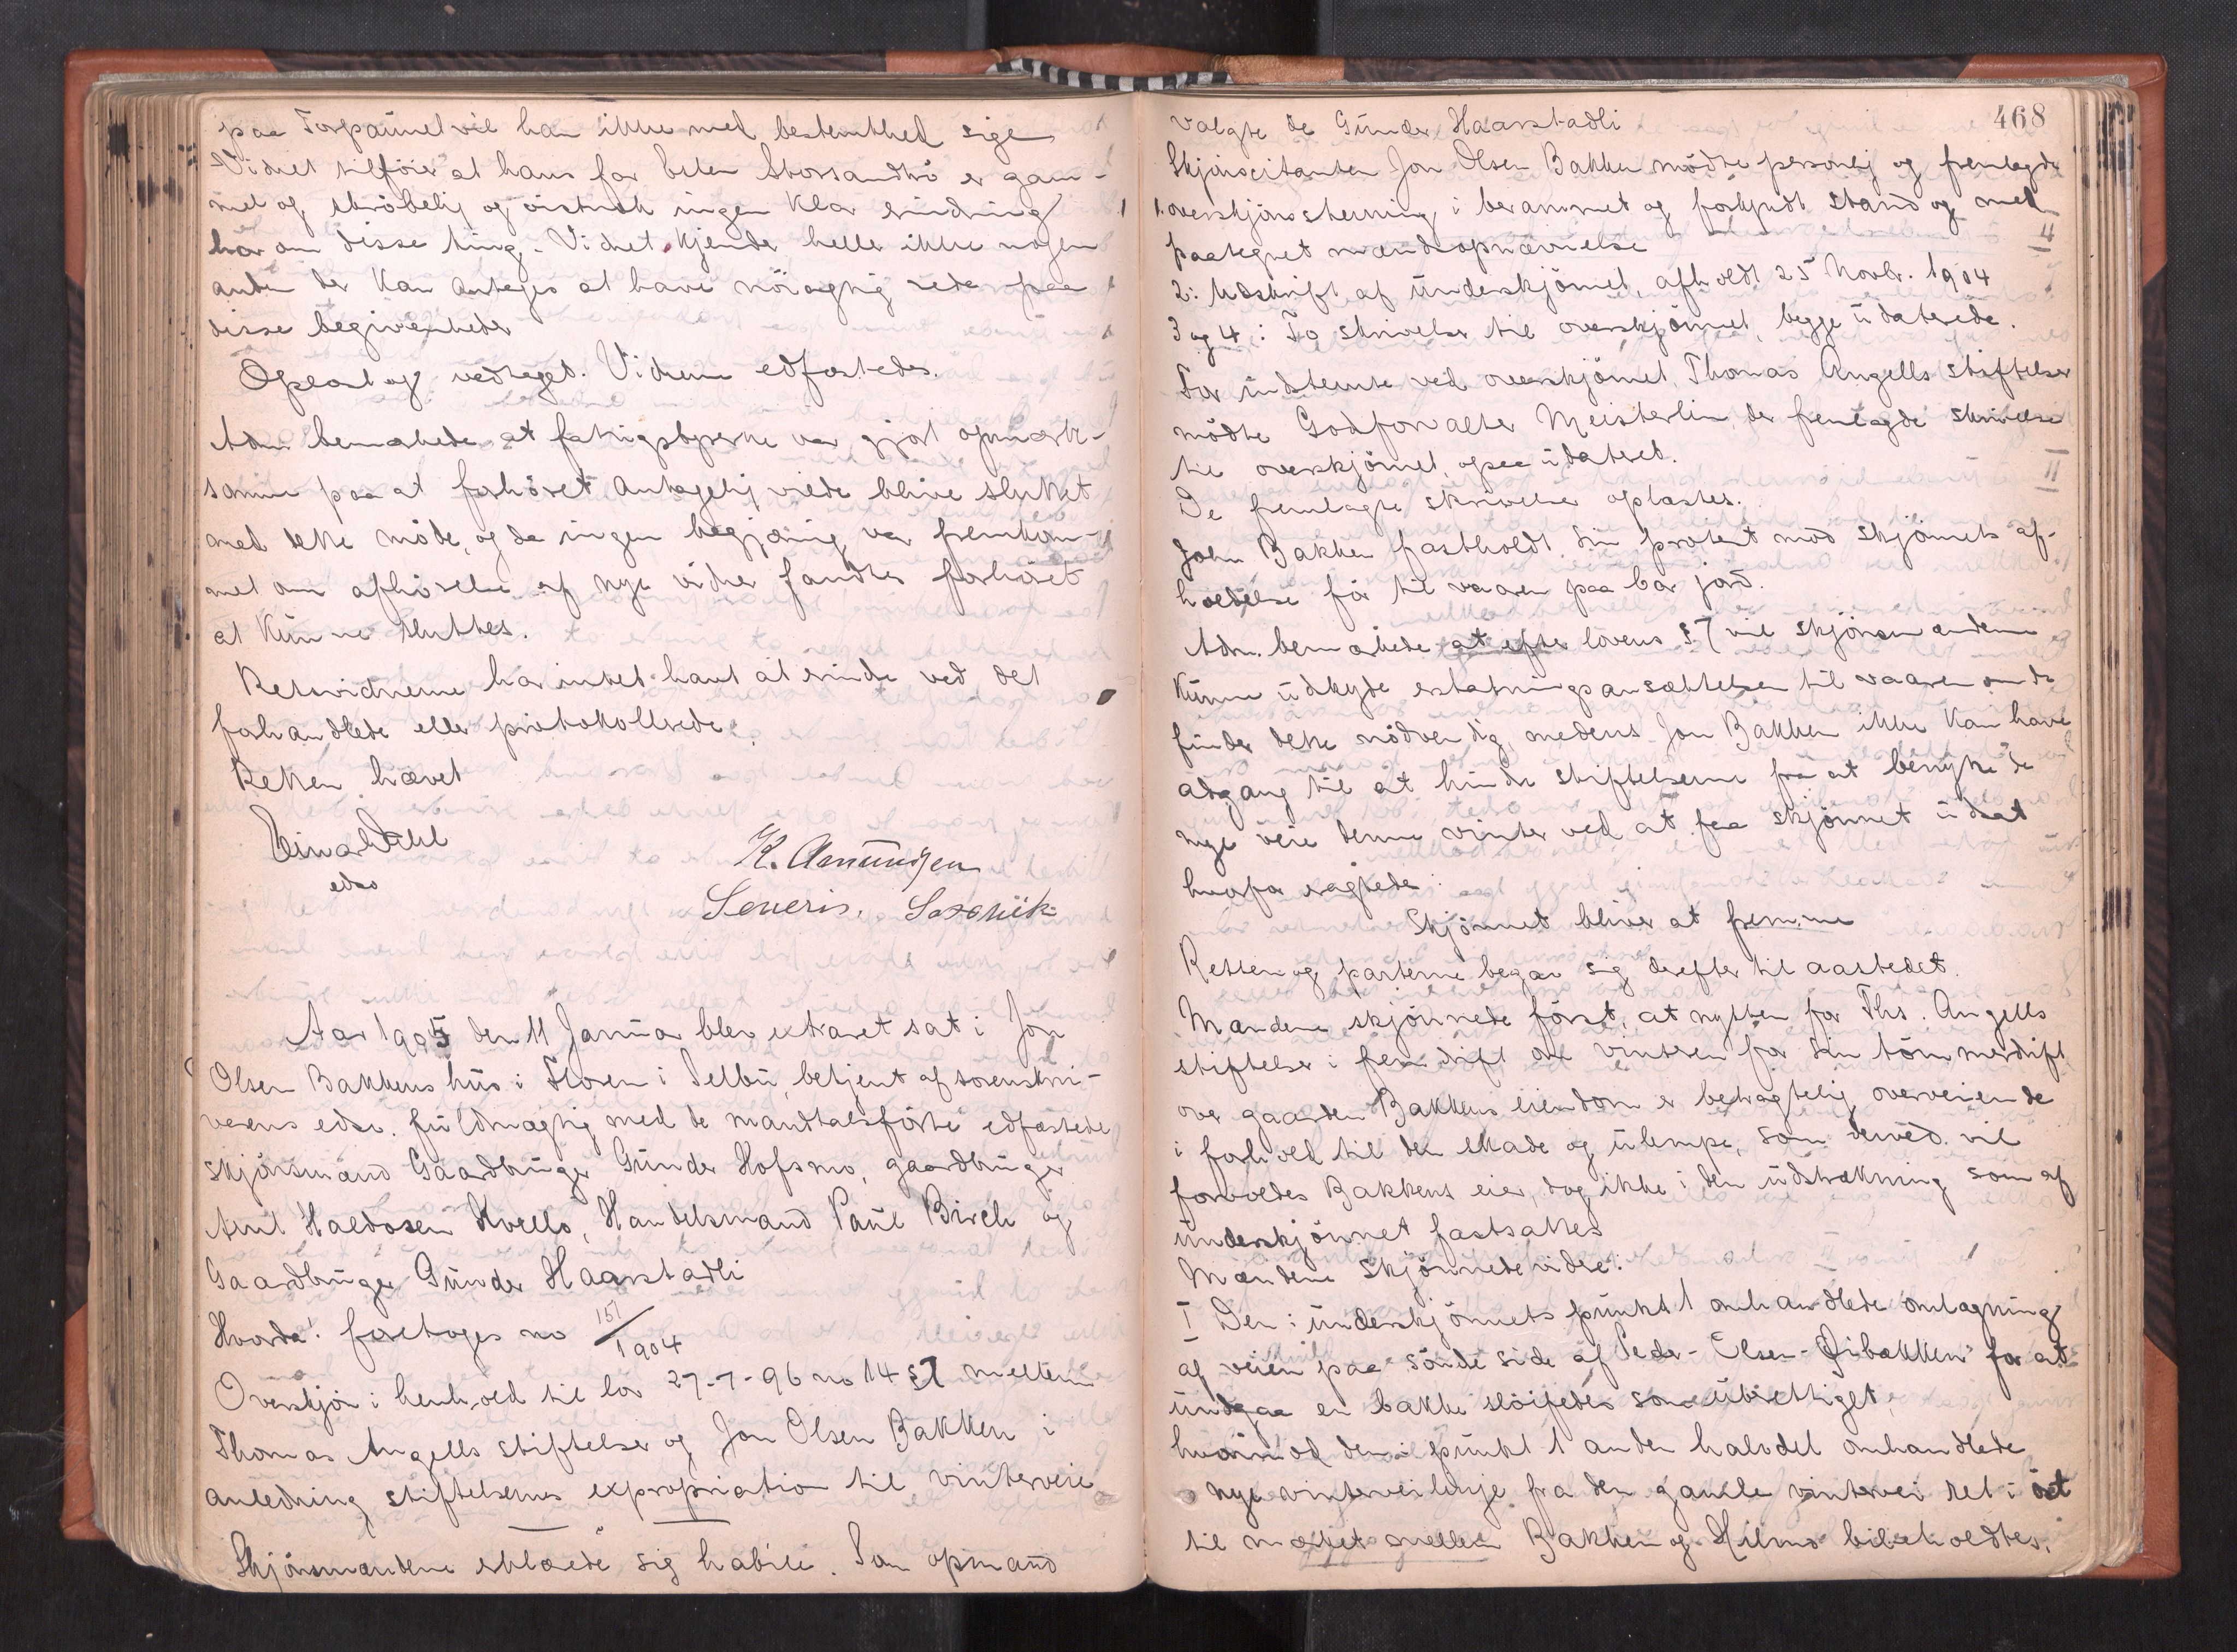 paa Torpaunet vil han ikke med bestemthed sige
Vidnet tilföier at hans far Esten Storsandrö er gam-
mel og skröbelig og vistnok ingen klar erindring
har om disse ting. Vidnet kjender heller ikke nogen
anden der kan antages at have nöiagtig rede paa
disse begivenheder
Oplæst og vedtaget. Vidnene edfæstedes.
Adm. bemærkede at fattigstyrerne var gjort opmærk-
somme paa at forhöret antagelig vilde blive sluttet
med dette möde, og da ingen begjæring var fremkom-
met om afhörelse af nye vidner fandtes forhöret
at kunne sluttes.
Retsvidnerne har intet havt at erindre ved det
forhandlede eller protokollerede.
Retten hævet
Einar Dahl
edsv
K. Amundsen
Severin. Saxvik
Aar 1905 den 11 Januar blev extraret sat i Jon
Olsen Bakkens hus i Floren i Selbu, betjent af sorenskri-
verens edsv. fuldmægtig med de mandtalsförte edfæstede
skjönsmænd Gaardbruger Gunder Hofsmo, gaardbruger
Arnt Haldosen Kvello, Handelsmand Paul Birch og
Gaardbruger Gunder Haarstadli
Hvorda: foretoges no 151/1904
Overskjön i henhold til lov 27-7-96 no 14 §7 mellem
Thomas Angells stiftelser og Jon Olsen Bakken i
anledning stiftelsernes expropriation til vinterveie
Skjönsmændene erklærede sig habile. Som opmand
468
valgte de Gunder Haarstadli
Skjönscitanten Jon Olsen Bakken mödte personlig og fremlagde
1. overskjönsstevning i berammet og forkyndt stand og med
paategnet mændsopnævnelse
II
2: Udskrift af underskjönnet, afholdt 25 Novbr. 1904
3 og 4: To skrivelser til overskjönnet, begge udaterede.
For indstevnte ved overskjönnet, Thomas Angells stiftelser
mödte Godsforvalter Meisterlin, der fremlagde skrivelse
til overskjönnet, ogsaa udateret.
II
De fremlagte skrivelser oplæstes.
John Bakken fastholdt sin protest mod skjönnets af-
holdelse för til vaaren paa bar jord.
Adm. bemærkede at efter lovens §7 vil skjönsmændene
kunne udskyde erstatningsansættelsen til vaaren om de
finder dette nödvendig, medens Jon Bakken ikke kan have
adgang til at hindre stiftelserne fra at benytte de
nye veie denne vinter ved at faa skjönnet udsat
hvorfor eragtede:
Skjönnet bliver at fremme
Retten og parterne begav sig derefter til aastedet.
Mændene skjönnede först, at nytten for Ths. Angells
stiftelser i fremdrift om vinteren for sin tömmerdrift
over gaarden Bakkens eiendom er betragtelig overveiende
i forhold til den skade og ulempe, som derved vil
forvoldes Bakkens eier, dog ikke i den udstrækning som af
underskjönnet fastsattes
Mændene skjönnede videre:
I Den i underskjönnets punkt 1 omhandlede omlægning
af veien paa söndre side af "Peder-Olsen-Öibakken" for at
undgaa en bakke slöifedes som uberettiget,
hvorimod den i punkt 1 anden halvdel omhandlede
nye vinterveilinje fra den gamle vintervei ret i öst
til mærket mellem Bakken og Hilmo bibeholdtes.